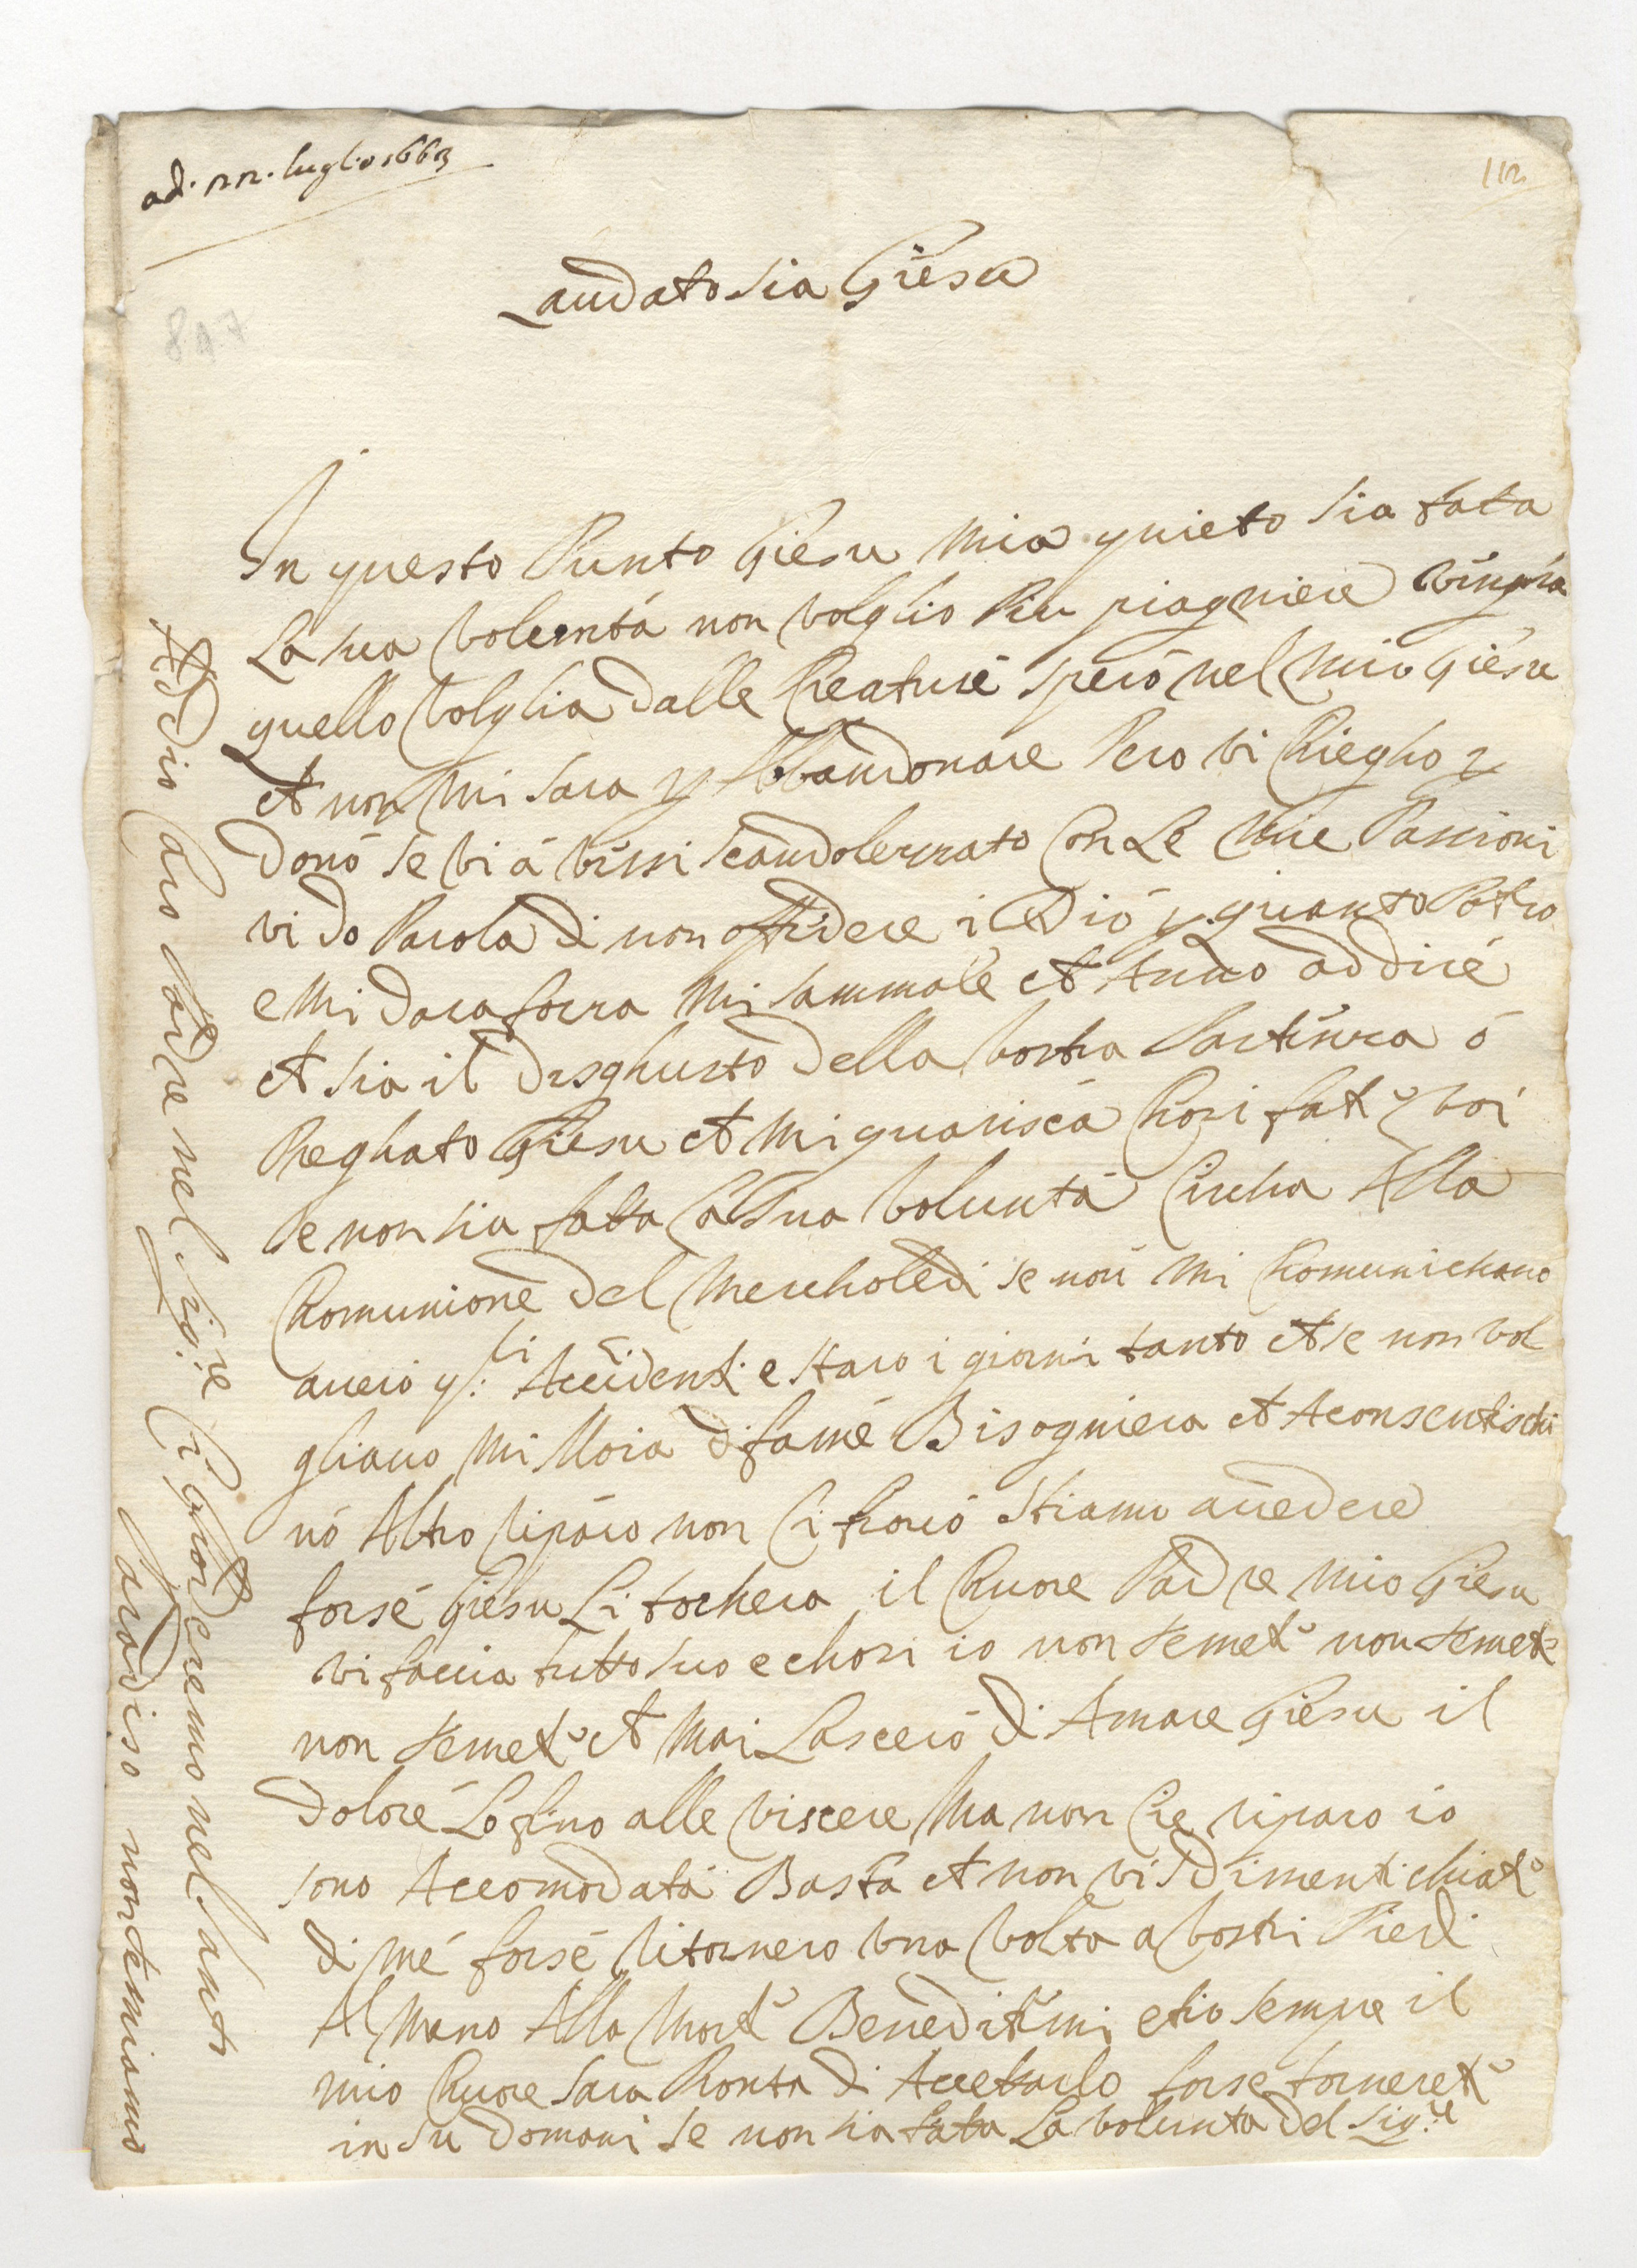 adi 22 luglio 1663
112
847
Laudato sia Giesu
In questo Punto Giesu Mia quieto sia fata
La sua volemtá non volglio Piu piagniere
quello volglia dalle Creature spero nel mio Giesu
et non mi sara p Abbandonare Pero vi Priegho p
dono se vi á vissi scandolezzato Con Le mie Passioni
vi do Parola di non offedere i Dio p quanto Potro
e mi dara forza Mi sammale et Anno addire
et sia il disghusto della vostra Partenza ó
Preghato Giesu et Mi guarisca Chosi fate voi
se non sia fatta La sua voluntá Circha Alla
Komunione del Mercholedi se non mi Komunichano
avero p: li Accidenti e staro i giorni tanto et se non vol
gliano Mi Moia di fame Bisogniera et Aconsentischi
nó Altro riparo non Ci trovó Stiamo avedere
forse Giesu Li tochera il Cuore Padre mio Giesu
vi faccia tutto suo e chosi io non temete non temete
non temete et Mai Lascero di Amare Giesu il
dolore Lo fino alle viscere Ma non Cie riparo io
sono Accomodata Basta et non vi Sdimentichiate
di mé forse ritornero una volta a vostri Piedi
Al meno Alla Morte Beneditemi et io sempre il
mio Cuore sara Pronta di Accetarlo forse tornerete
in su domani se non sia fata La volunta del Sig.re
Addio Caro Padre nel Sig.re Ci Rivedremo nel Santo
Paradiso non temiamo